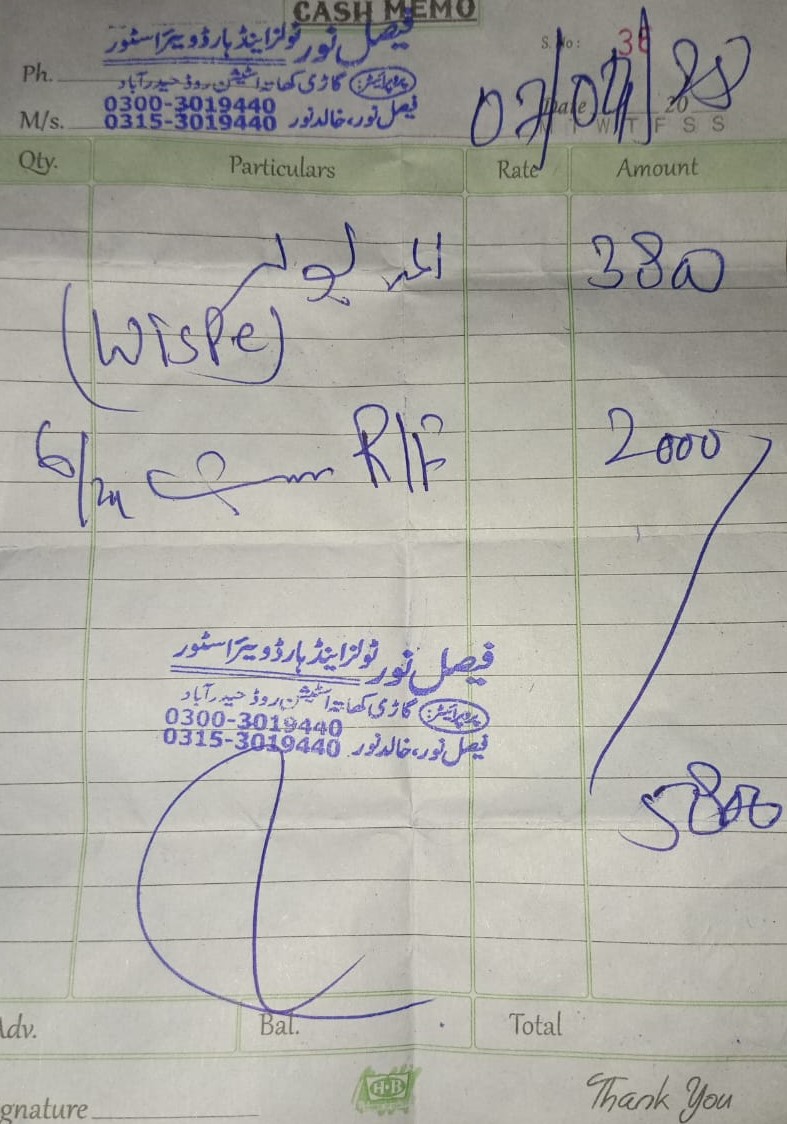 CASH MEMO
فیصل نور ٹولز اینڈ ہارڈویئر اسٹور
S. No: 36
Ph.
پروپرائیٹرز: گاڑی کھاتہ اسٹیشن روڈ حیدرآباد
0300-3019440
M/s. 0315-3019440 فیصل نور، خالد نور
Date 07/04/ 20
M T W T F S S
Qty. Particulars Rate Amount
3800
(Wispe)
6/24 R/F 2000
فیصل نور ٹولز اینڈ ہارڈویئر اسٹور
پروپرائیٹرز: گاڑی کھاتہ اسٹیشن روڈ حیدرآباد
0300-3019440
0315-3019440 فیصل نور، خالد نور
5800
Adv. Bal. Total
H·B
gnature
Thank You